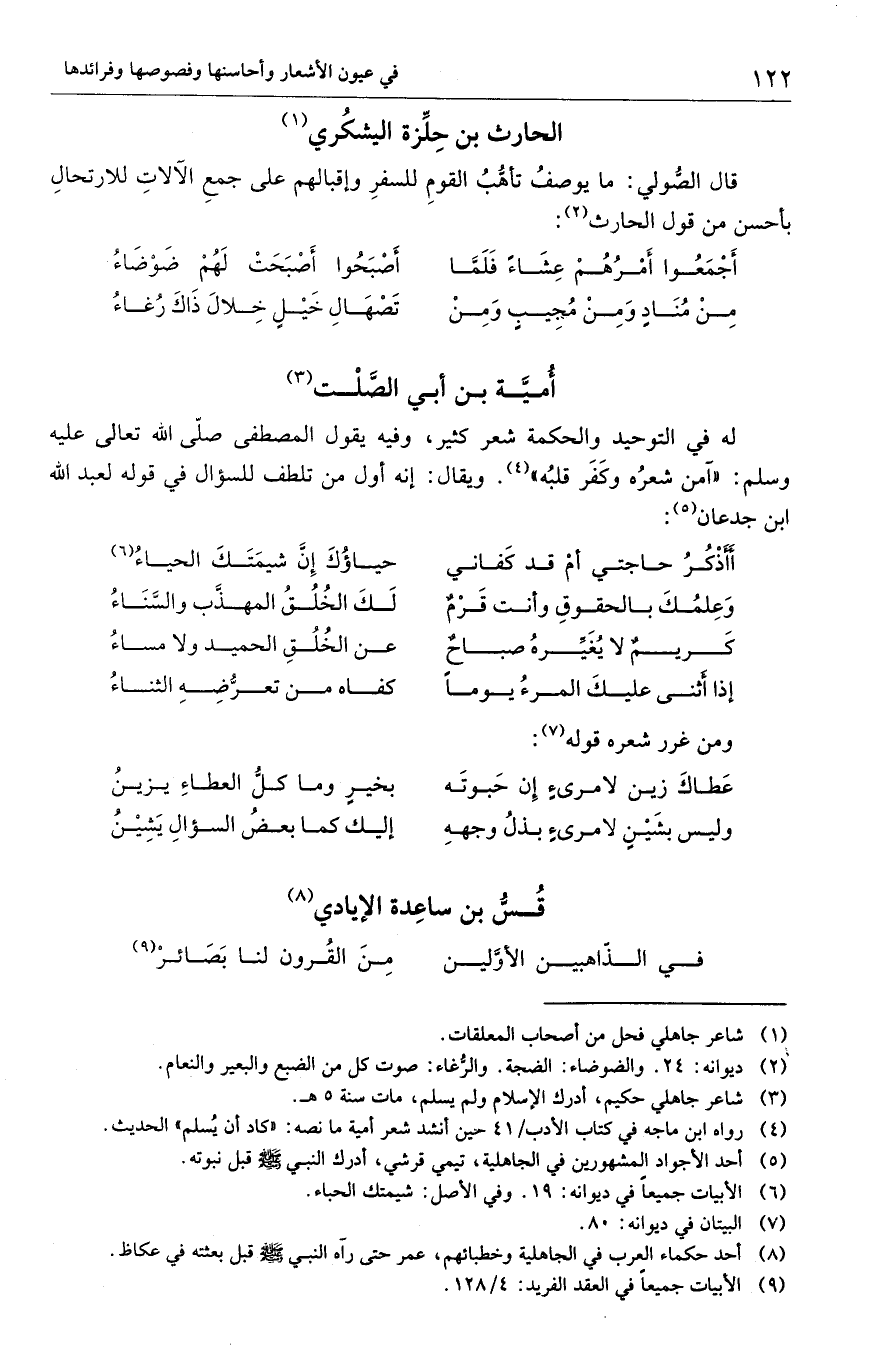 ١٢٢ في عيون الأشعار وأحاسنها وفصوصها وفرائدها
الحارث بن حِلِّزة اليشكُري(١)
قال الصُّولي: ما يوصفُ تأهُّبُ القومِ للسفرِ وإقبالهم على جمعِ الآلاتِ للارتحالِ
بأحسن من قول الحارث(٢):
أَجْمَعُوا أَمْرُهُمْ عِشَاءً فَلَمَّا أَصْبَحُوا أَصْبَحَتْ لَهُمْ ضَوْضَاءُ
مِنْ مُنَادٍ وَمِنْ مُجِيبٍ وَمِنْ تَصْهَالِ خَيْلٍ خِلالَ ذَاكَ رُغاءُ
أُميَّة بن أبي الصَّلْت(٣)
له في التوحيد والحكمة شعر كثير، وفيه يقول المصطفى صلّى الله تعالى عليه
وسلم: «آمن شعرُه وكَفَر قلبُه»(٤). ويقال: إنه أول من تلطف للسؤال في قوله لعبد الله
ابن جدعان(٥):
أَأَذْكُرُ حاجتي أمْ قد كَفاني حياؤُكَ إنَّ شيمَتَكَ الحياءُ(٦)
وَعِلمُكَ بالحقوقِ وأنت قَرْمٌ لَكَ الخُلُقُ المهذَّب والسَّنَاءُ
كَريمٌ لا يُغَيِّرهُ صباحٌ عن الخُلُقِ الحميد ولا مساءُ
إذا أَثنى عليكَ المرءُ يوماً كفاه من تعرُّضِهِ الثناءُ
ومن غرر شعره قوله(٧):
عَطاكَ زين لامرىءٍ إن حَبوتَه بخيرٍ وما كلُّ العطاءِ يزينُ
وليس بشَيْنٍ لامرىءٍ بذلُ وجههِ إليك كما بعضُ السؤالِ يَشِيْنُ
قُسُّ بن ساعِدة الإيادي(٨)
في الذّاهبين الأوَّلين مِنَ القُرون لنا بَصَائرْ(٩)
(١) شاعر جاهلي فحل من أصحاب المعلقات.
(٢) ديوانه: ٢٤. والضوضاء: الضجة. والرُّغاء: صوت كل من الضبع والبعير والنعام.
(٣) شاعر جاهلي حكيم، أدرك الإسلام ولم يسلم، مات سنة ٥ هـ.
(٤) رواه ابن ماجه في كتاب الأدب/٤١ حين أنشد شعر أمية ما نصه: «كاد أن يُسلم» الحديث.
(٥) أحد الأجواد المشهورين في الجاهلية، تيمي قرشي، أدرك النبي ﷺ قبل نبوته.
(٦) الأبيات جميعاً في ديوانه: ١٩. وفي الأصل: شيمتك الحباء.
(٧) البيتان في ديوانه: ٨٠.
(٨) أحد حكماء العرب في الجاهلية وخطبائهم، عمر حتى رآه النبي ﷺ قبل بعثته في عكاظ.
(٩) الأبيات جميعاً في العقد الفريد: ١٢٨/٤.